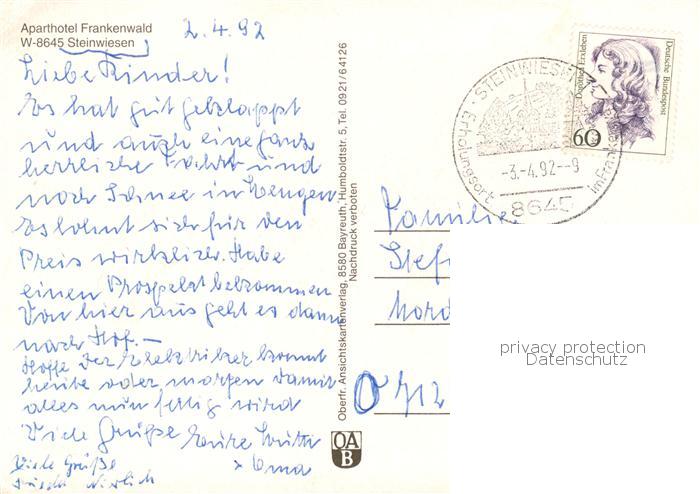 Aparthotel Frankenwald
W-8645 Steinwiesen
2.4.92
Liebe Kinder!
Es hat gut geklappt
und auch eine ganz
herrliche Fahrt und
noch Schnee in Mengen
Es lohnt sich für den
Preis wirklich. Habe
einen Prospekt bekommen
Von hier aus geht es dann
nach Hof.—
Hoffe der Elektriker kommt
heute oder morgen damit
alles nun fertig wird
Viele Grüße Eure Mutti
+ Oma
Viele Grüße
Oberfr. Ansichtskartenverlag, 8580 Bayreuth, Humboldtstr. 5, Tel. 0921/64126
Nachdruck verboten
OA
B
STEINWIESEN
Erholungsort
-3.-4.92--9
8645
Dorothea Erxleben
Deutsche Bundespost
60
Familie
Stef
Nord
O 712
privacy protection
Datenschutz